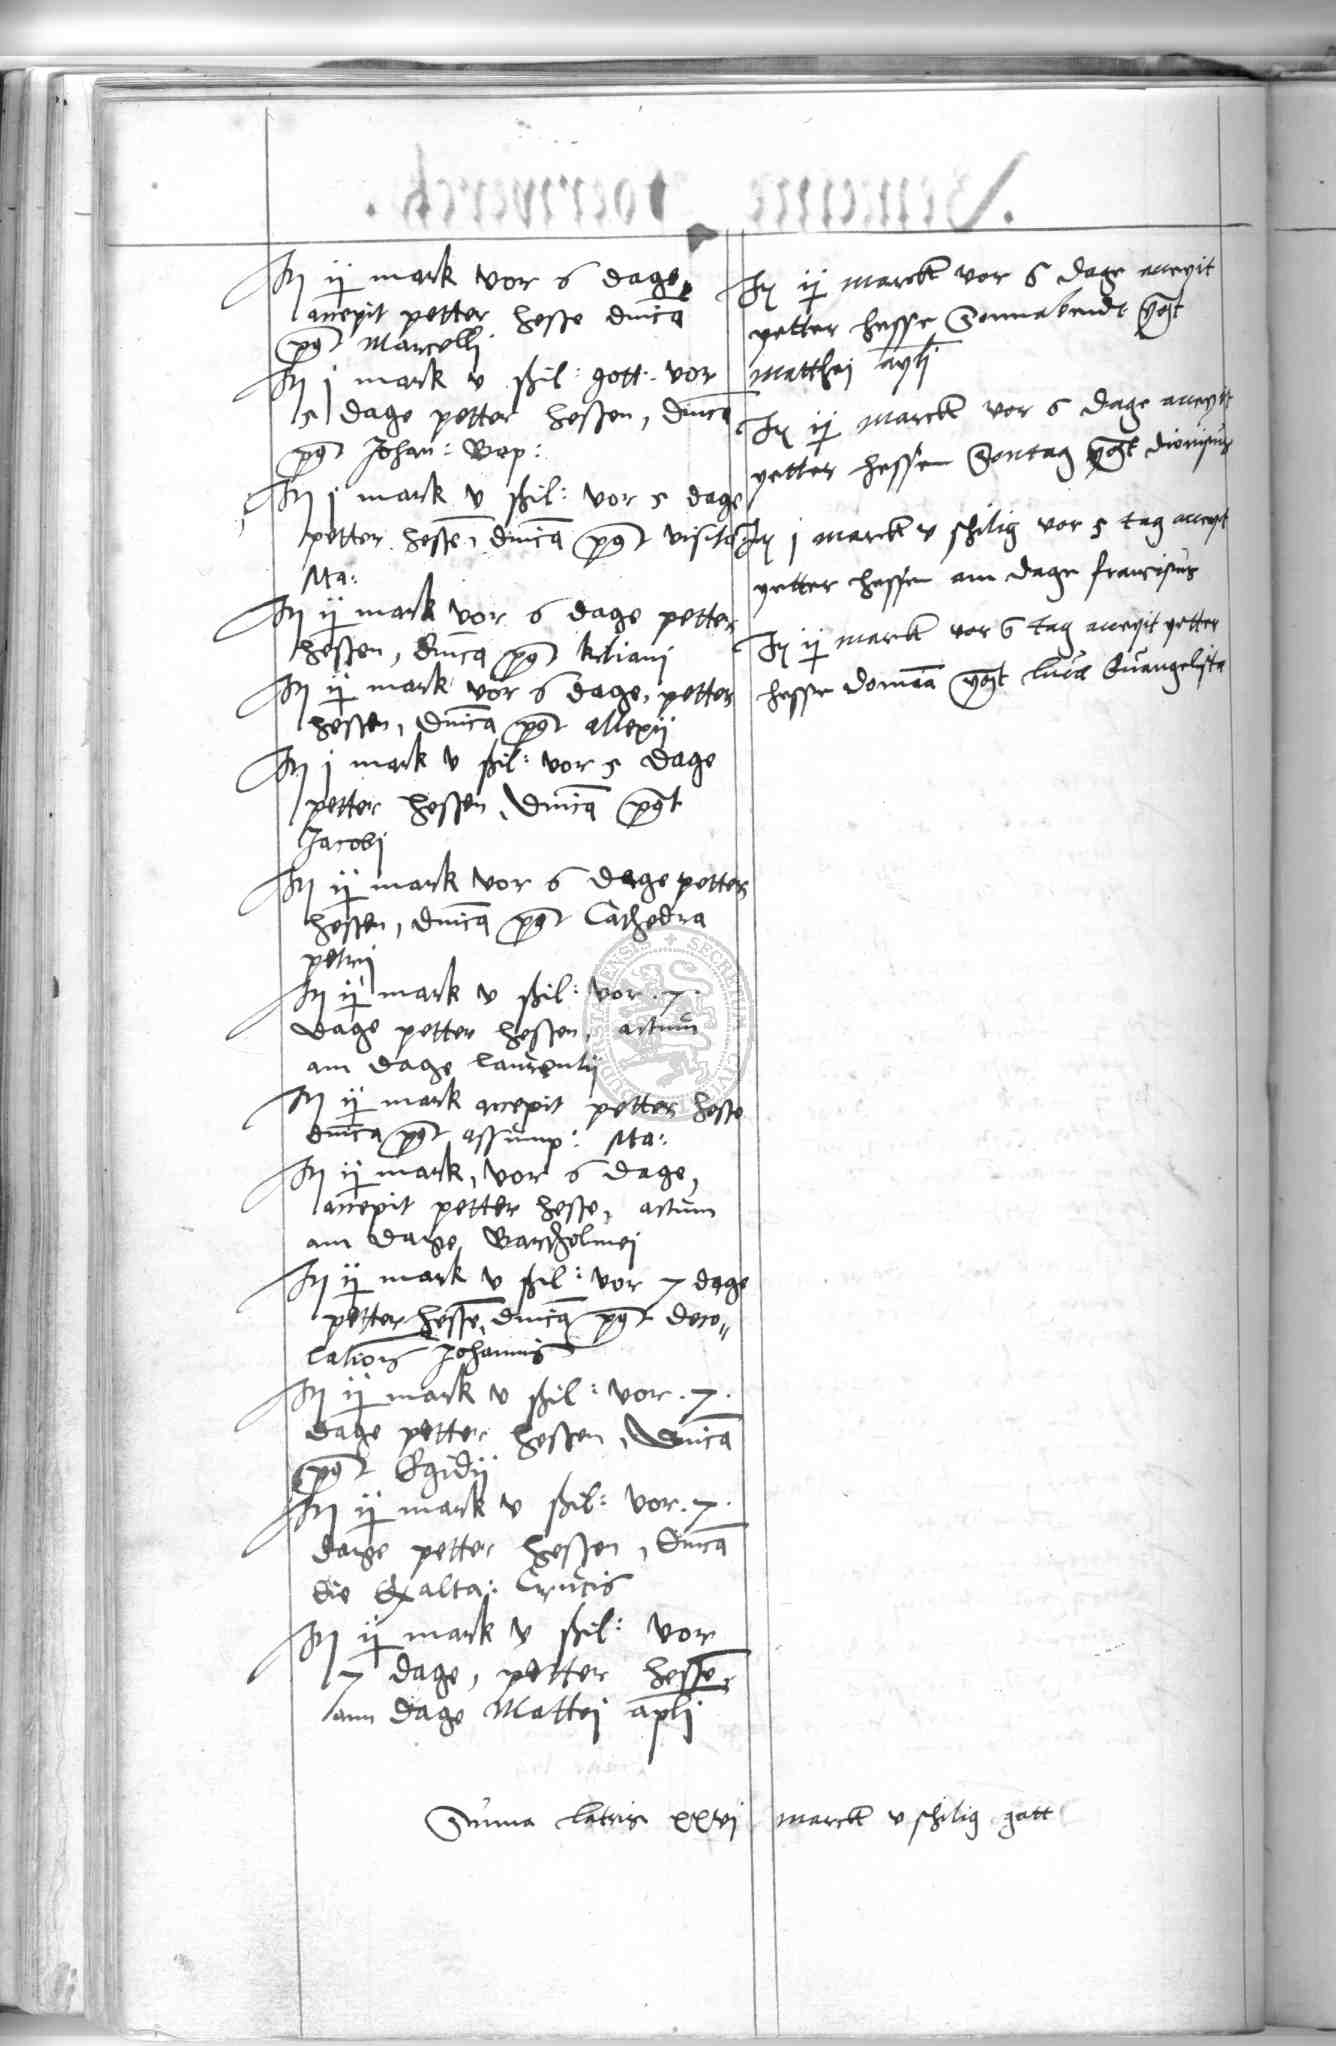 It ij mark vor 6 dage,
accepit petter hesse dnica
post Marcelli
It j mark v ßil: gott: vor
5 dage petter hessen, dnica
post Johan: Bap:
It j mark v ßil: vor 5 dage
petter hessen, dnica post visitaō
Ma:
It ij mark vor 6 dage petter
hessen, dnica post kiliani
It ij mark vor 6 dage, petter
hessen, dnica post allexij
It j mark v ßil: vor 5 dage
petter hessen, dnica post
Jacobj
It ij mark vor 6 dage petter
hessen, dnica post Cathedra
petrij
It ij mark v ßil: vor .7.
dage petter hessen, actum
am dage laurentij
It ij mark accepit petter hesse
dnica post assump: Ma:
It ij mark, vor 6 dage,
accepit petter hesse, actum
am dage Bartholmei
It ij mark v ßil: vor 7 dage
petter hessē, dnica post deco„
lationis Johannis
It ij mark v ßil: vor .7.
dage petter hessen, dnica
post Egidij
It ij mark v ßil: vor .7.
dage petter hessen, dnica
die Exalta: Crucis
It ij mark v ßil: vor
7 dage, petter hessē,
am dage Mattej apli
It ij marck vor 6 dage accepit
petter hesse Sonnabendt post
matthej apli
It ij marck vor 6 dage accepit
petter hessen Sontag post dionisius
It j marck v schilig vor 5 tag accepit
petter hessen am dage franciscus
It ij marck vor 6 tag accepit petter
hesse domīca post luca Euangelista
Summa lateris xxvj marck v schilig gott